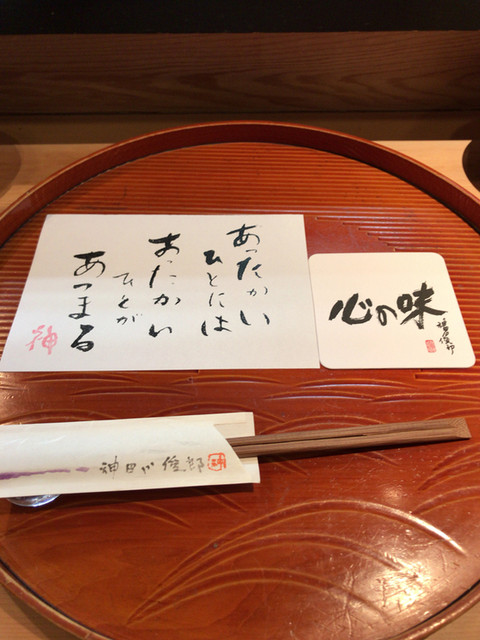 あったかい
ひとには
あったかい
ひとが
あつまる
神
心の味
神田川俊郎
神田川俊郎